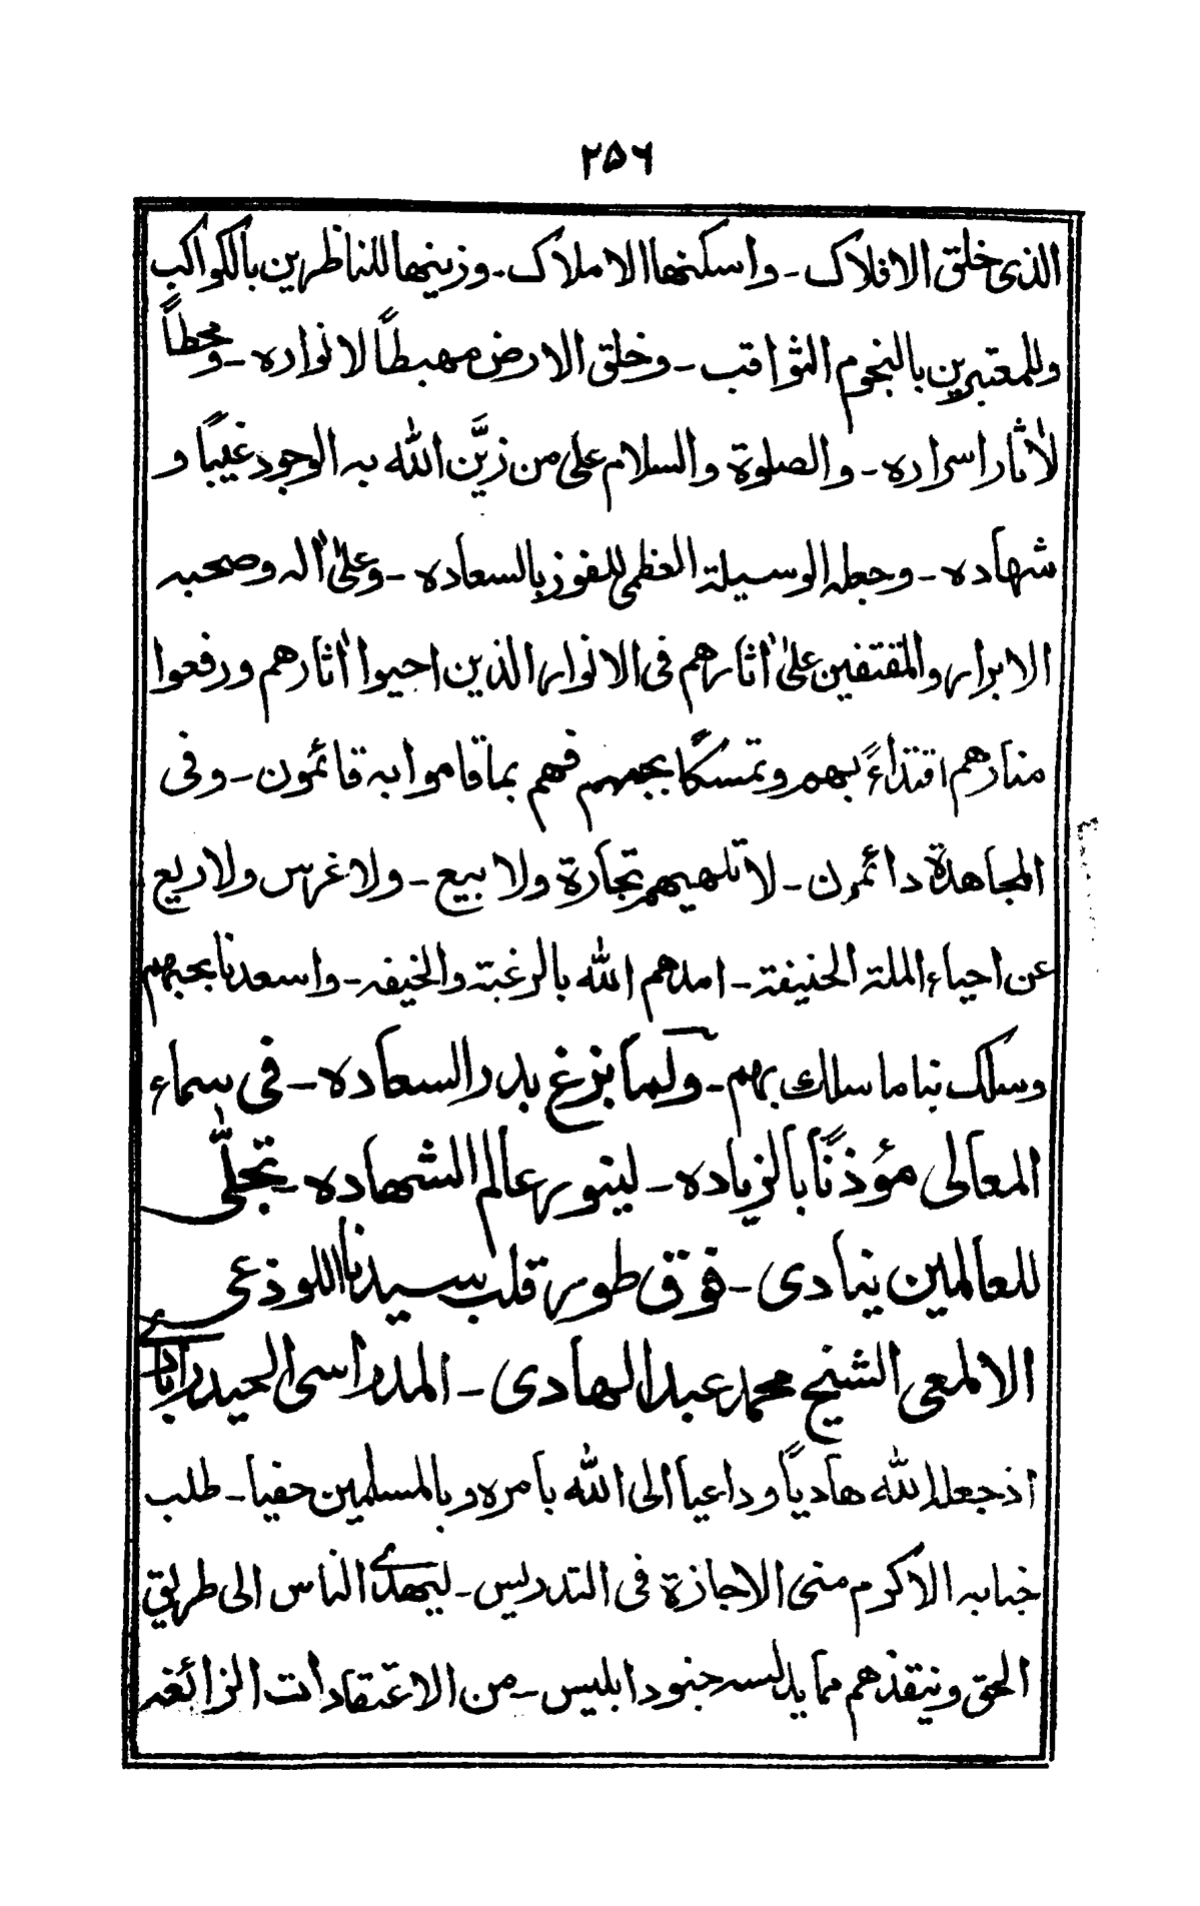 ۲۵۶
الذى خلق الافلاک ـ واسکنها الاملاک ـ وزینها للناظرین بالکواکب
وللمعتبرین بالنجوم الثواقب ـ وخلق الارض مهبطاً لانواره ـ ومحطاً
لاٰثار اسراره ـ والصلوة والسلام على من زیَّن الله به الوجود غیبًا و
شهاده ـ وجعله الوسیلة العظمى للفوز بالسعاده ـ وعلىٰ اٰله وصحبه
الابرار والمقتفین علىٰ اٰثارهم فى الانوار الذین احیوا اٰثارهم ورفعوا
منارهم اقتداءً بهم وتمسکًا بحبهم فهم بما قاموا به قائمون ـ وفى
المجاهدة دائمون ـ لا تلهیهم تجارة ولا بیع ـ ولا غرس ولا ریع
عن احیاء الملة الحنیفة ـ امدهم الله بالرغبة والخیفه ـ واسعدنا بحبهم
وسلک بنا ما سلک بهم ـ ولما بزغ بدر السعاده ـ فى سماء
المعالى مؤذنًا بالزیاده ـ لینور عالم الشهاده ـ تجلّى
للعالمین ینادى ـ فوق طور قلب سیدنا اللوذعى
الالمعى الشیخ محمد عبد الهادى ـ المدراسى الحیدرابادى
اذ جعله الله هادیاً وداعیاً الى الله بامره وبالمسلمین حفیا ـ طلب
جنابه الاکرم منى الاجازة فى التدریس ـ لیهدى الناس الى طریق
الحق وینقذهم مما یدلسه جنود ابلیس ـ من الاعتقادات الزائغه